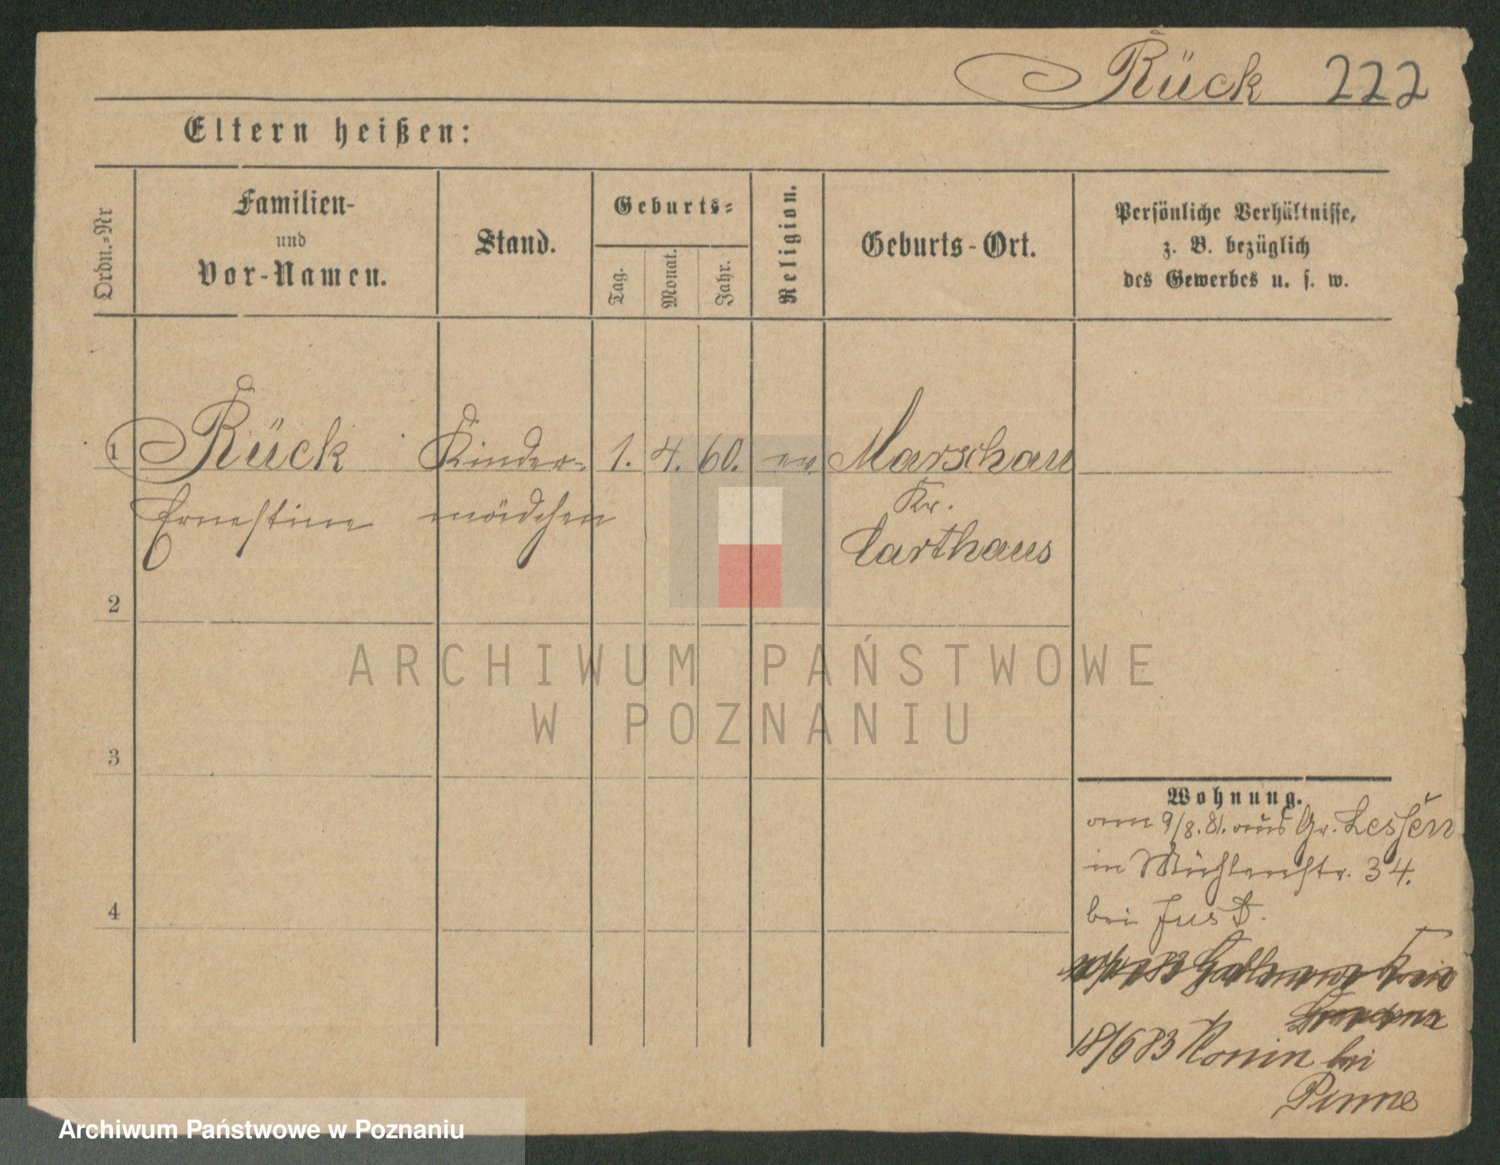 Rück 222
Eltern heißen:
Ordn.=Nr
Familien-
und
Vor-Namen.
Stand.
Geburts=
Tag.
Monat.
Jahr.
Religion.
Geburts-Ort.
Persönliche Verhältnisse,
z. B. bezüglich
des Gewerbes u. s. w.
1 Rück Kinder- 1. 4. 60. ev Marschau
Ernestine mädchen Kr.
Carthaus
2
3
4
Wohnung.
am 9/8. 81. aus Gr. Lessen
in Mühlenstr. 34.
bei Just.
18/6 83 Konin bei
Pinne
ARCHIWUM PAŃSTWOWE
W POZNANIU
Archiwum Państwowe w Poznaniu